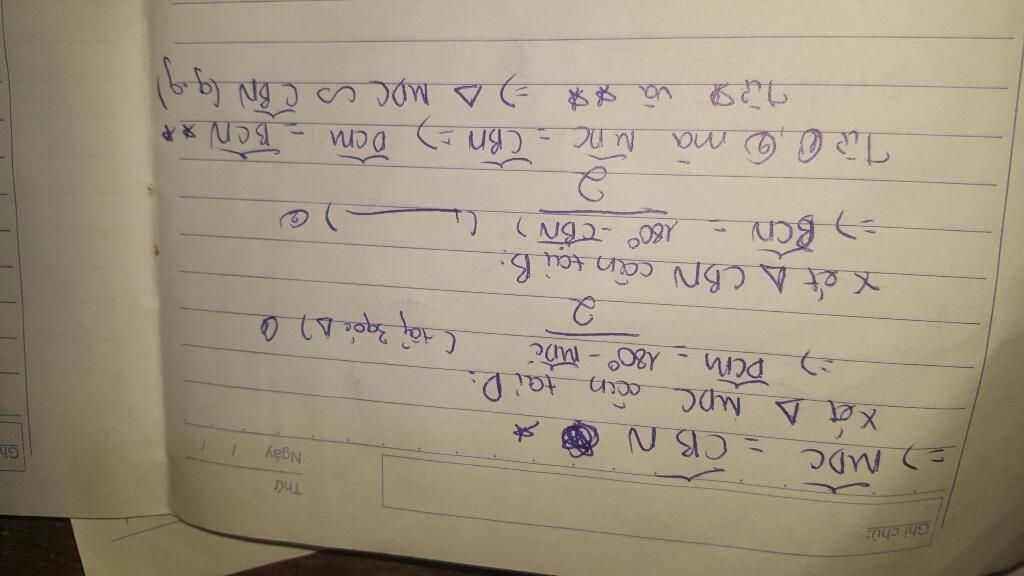 Ghi chú:
Thứ
Ngày / /
=> MDC = CBN *
Xét Δ MDC cân tại D:
=> DCM = 180° - MDC / 2 (tổng 3 góc Δ) ①
Xét Δ CBN cân tại B:
=> BCN = 180° - CBN / 2 ②
Từ ①, ② mà MDC = CBN => DCM = BCN **
Từ * và ** => Δ MDC ∽ CBN (g-g)
Gh